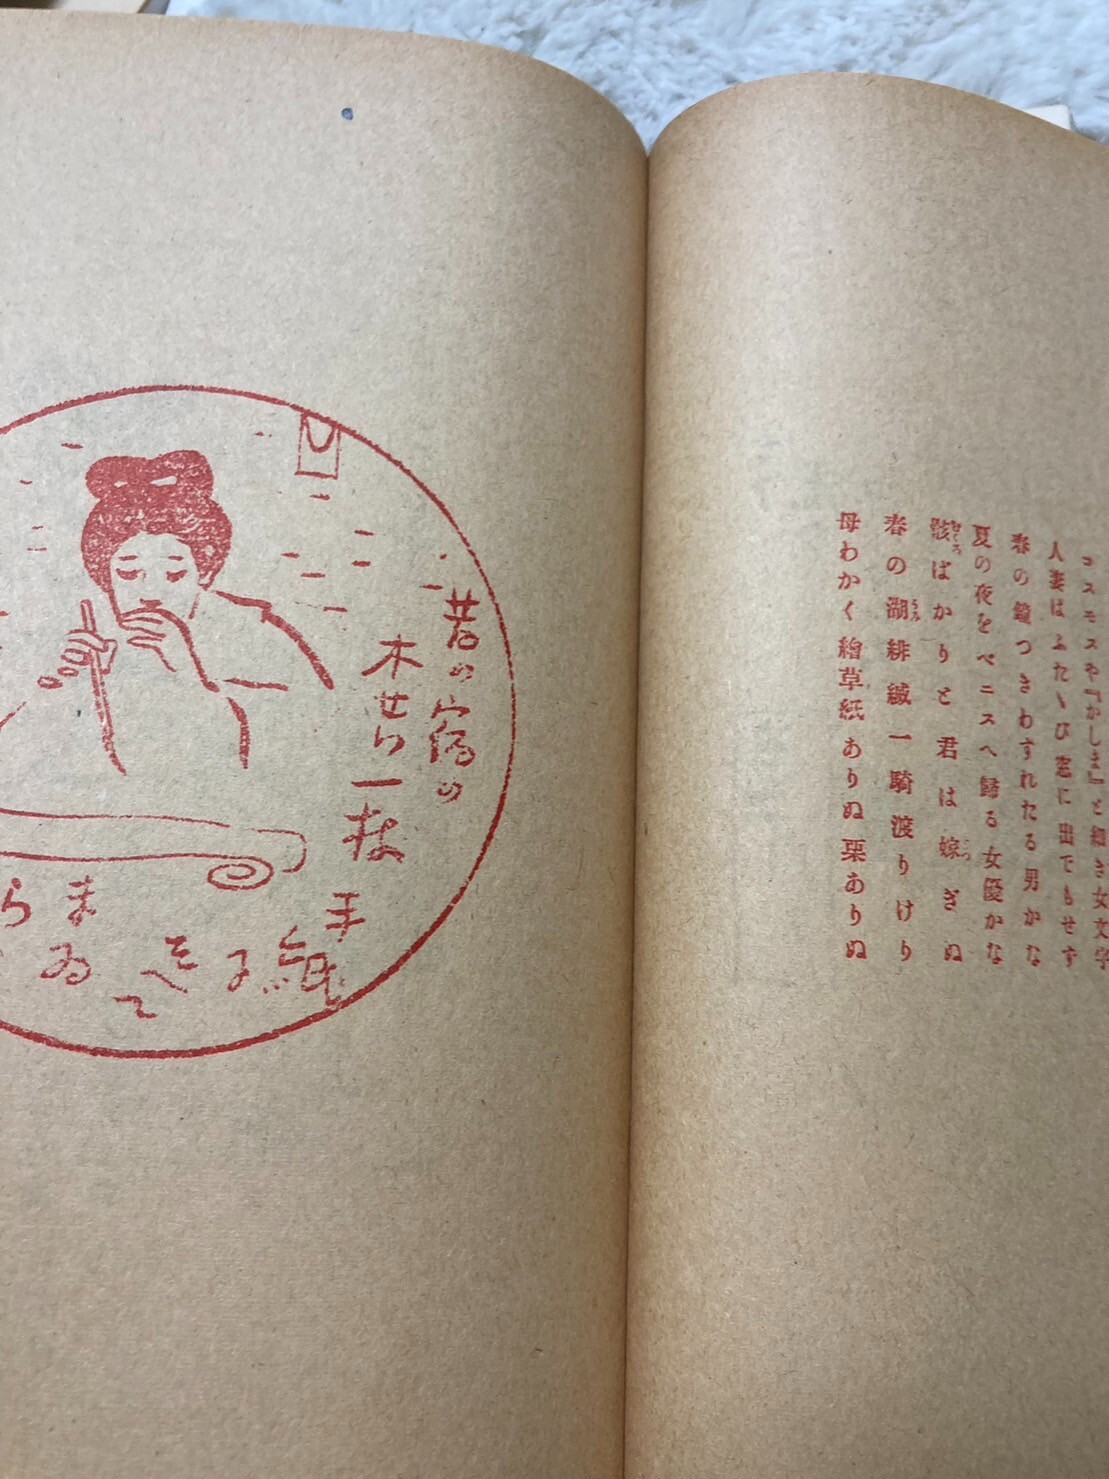 コスモスや『かしま』と細き女文字
人妻はふたゝび窓に出でもせず
春の鐘つきわすれたる男かな
夏の夜をベニスへ歸る女優かな
骸ばかりと君は嫁ぎぬ
春の湖緋縅一騎渡りけり
母わかく繪草紙ありぬ栗ありぬ
昔の宿の
木せる一枝
手
紙
ま
ゐ
ら